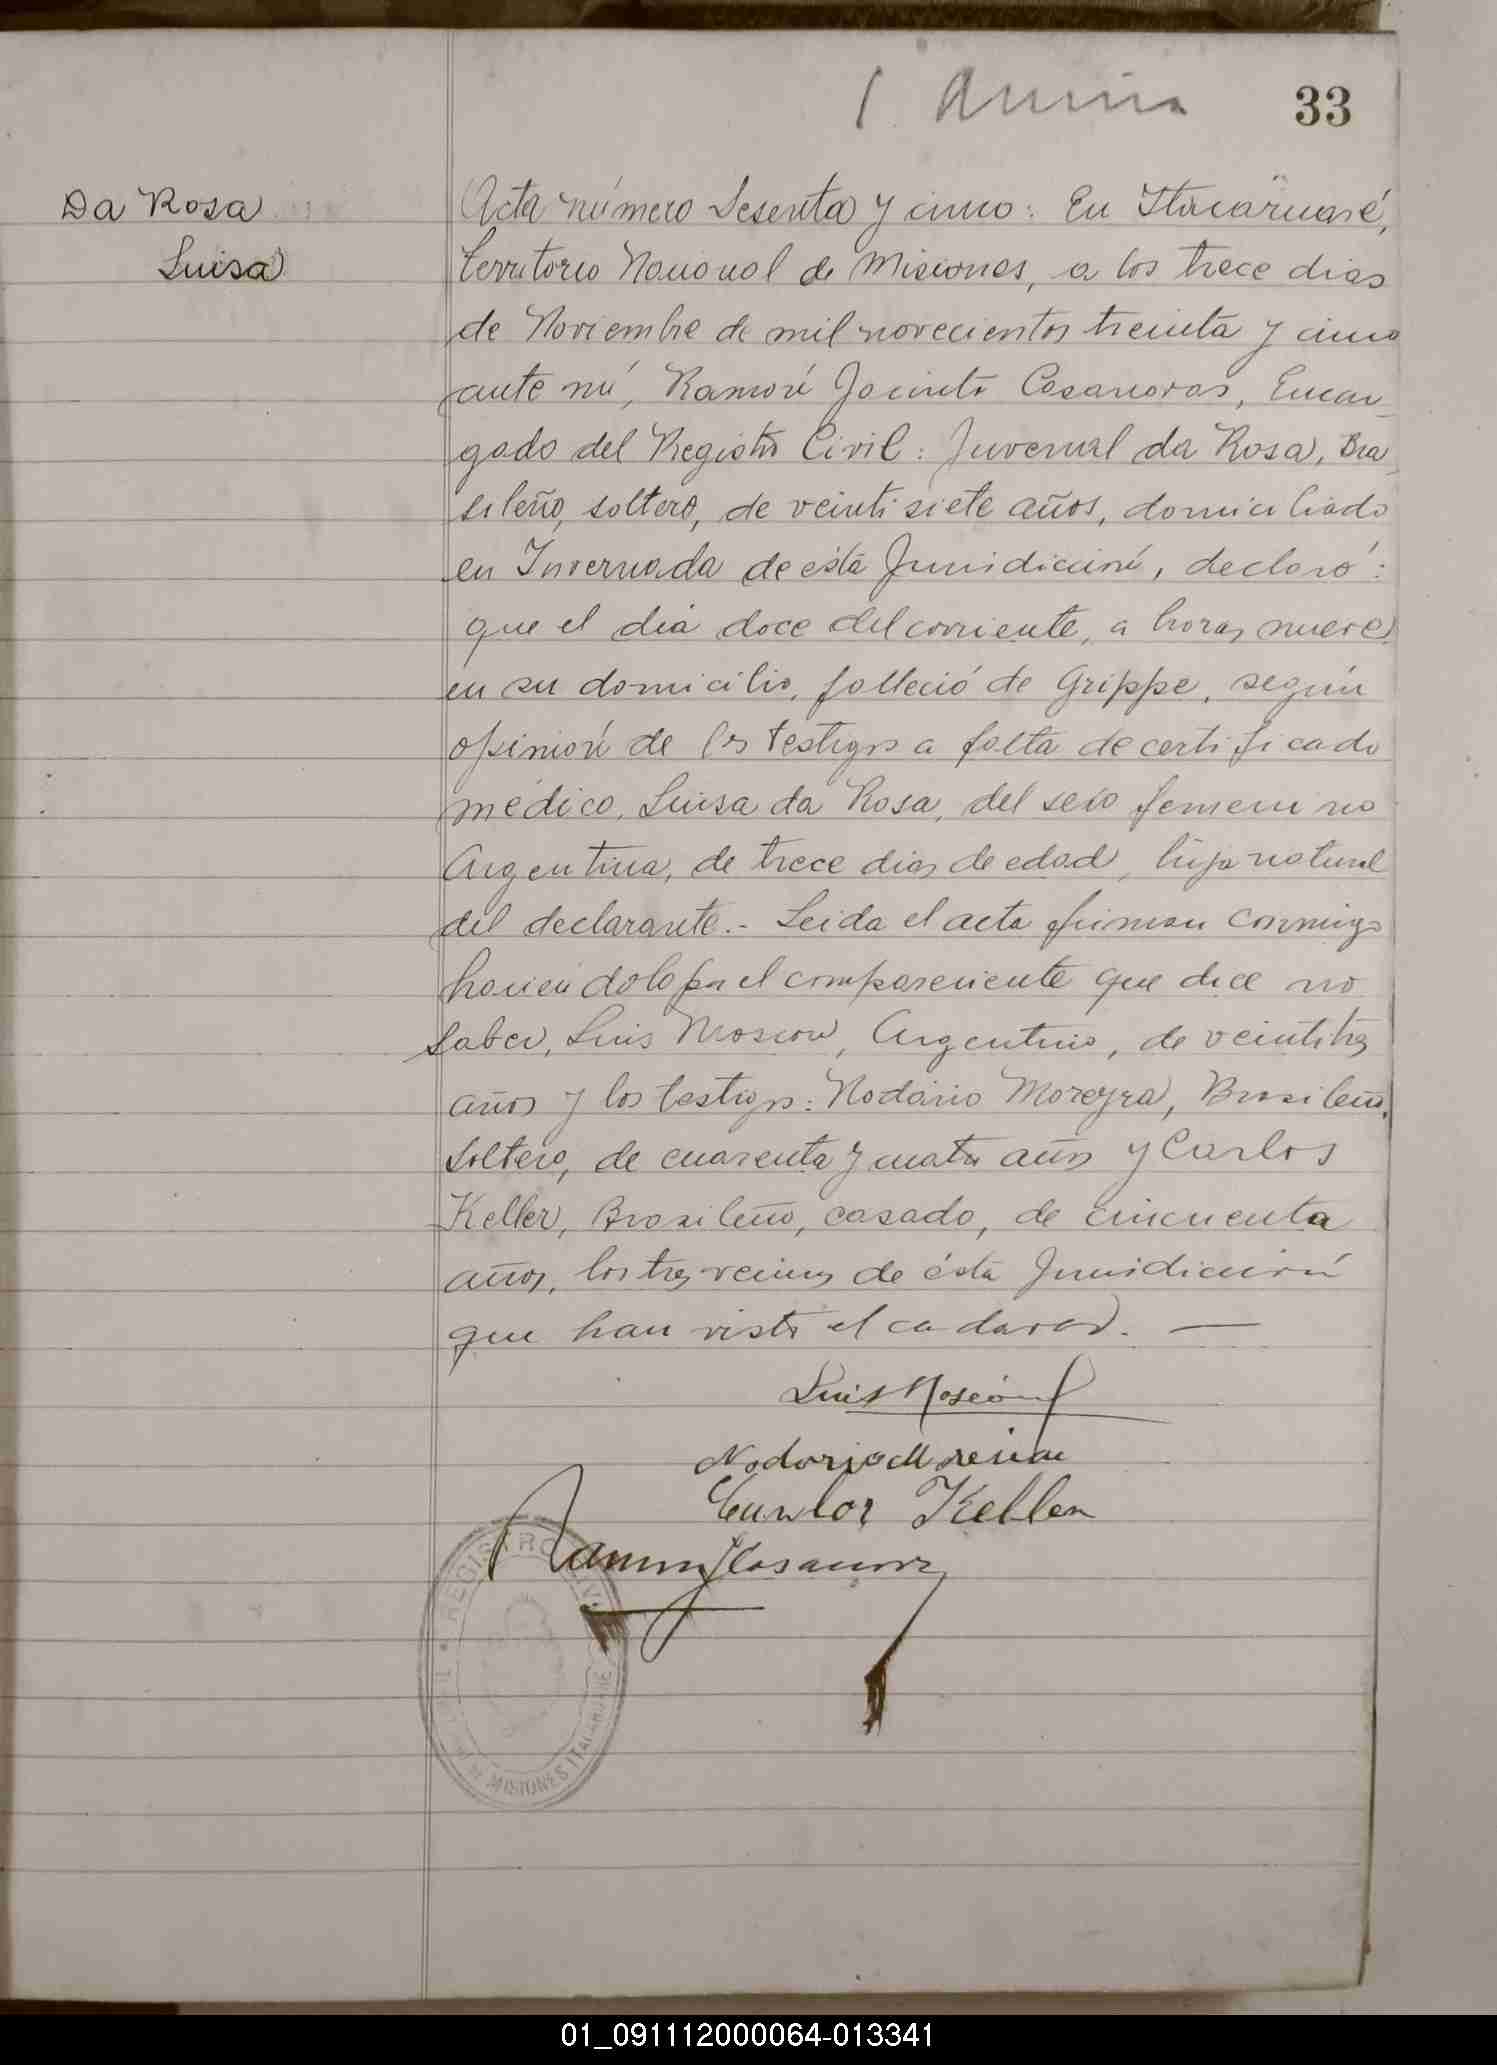 33
Da Rosa
Luisa
Acta número Sesenta y cinco: En Itacaruaré,
territorio Nacional de Misiones, a los trece dias
de Noviembre de mil novecientos treinta y cinco
ante mí, Ramón Jacinto Casanovas, Encar-
gado del Registro Civil: Juvenal da Rosa, Bra-
sileño, soltero, de veintisiete años, domiciliado
en Invernada de ésta Jurisdicción, declaró:
que el día doce del corriente, a horas nueve
en su domicilio, falleció de Grippe, según
opinión de los testigos a falta de certificado
médico, Luisa da Rosa, del sexo femenino
Argentina, de trece dias de edad, hija natural
del declarante.- Leida el acta firman conmigo
haciendolo por el compareciente que dice no
saber, Luis Moscon, Argentino, de veintitres
años y los testigos: Nodário Moreyra, Brasileño,
soltero, de cuarenta y cuatro años y Carlos
Keller, Brasileño, casado, de cincuenta
años, los tres vecinos de ésta Jurisdicción
que han visto el cadaver. —
Luis Moscón
Nodario Moreira
Carlos Keller
Ramon J Casanovas
REGISTRO CIVIL
MISIONES ITACARUARE
01_091112000064-013341